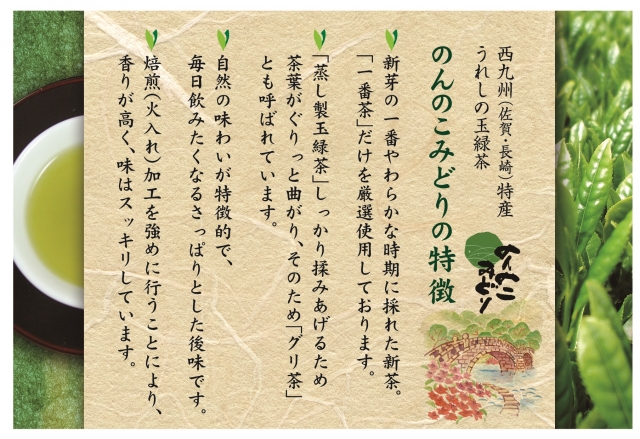 西九州（佐賀・長崎）特産
うれしの玉緑茶
のんのこみどりの特徴
のんのこ
みどり
新芽の一番やわらかな時期に採れた新茶。
「一番茶」だけを厳選使用しております。
「蒸し製玉緑茶」しっかり揉みあげるため
茶葉がぐりっと曲がり、そのため「グリ茶」
とも呼ばれています。
自然の味わいが特徴的で、
毎日飲みたくなるさっぱりとした後味です。
焙煎（火入れ）加工を強めに行うことにより、
香りが高く、味はスッキリしています。